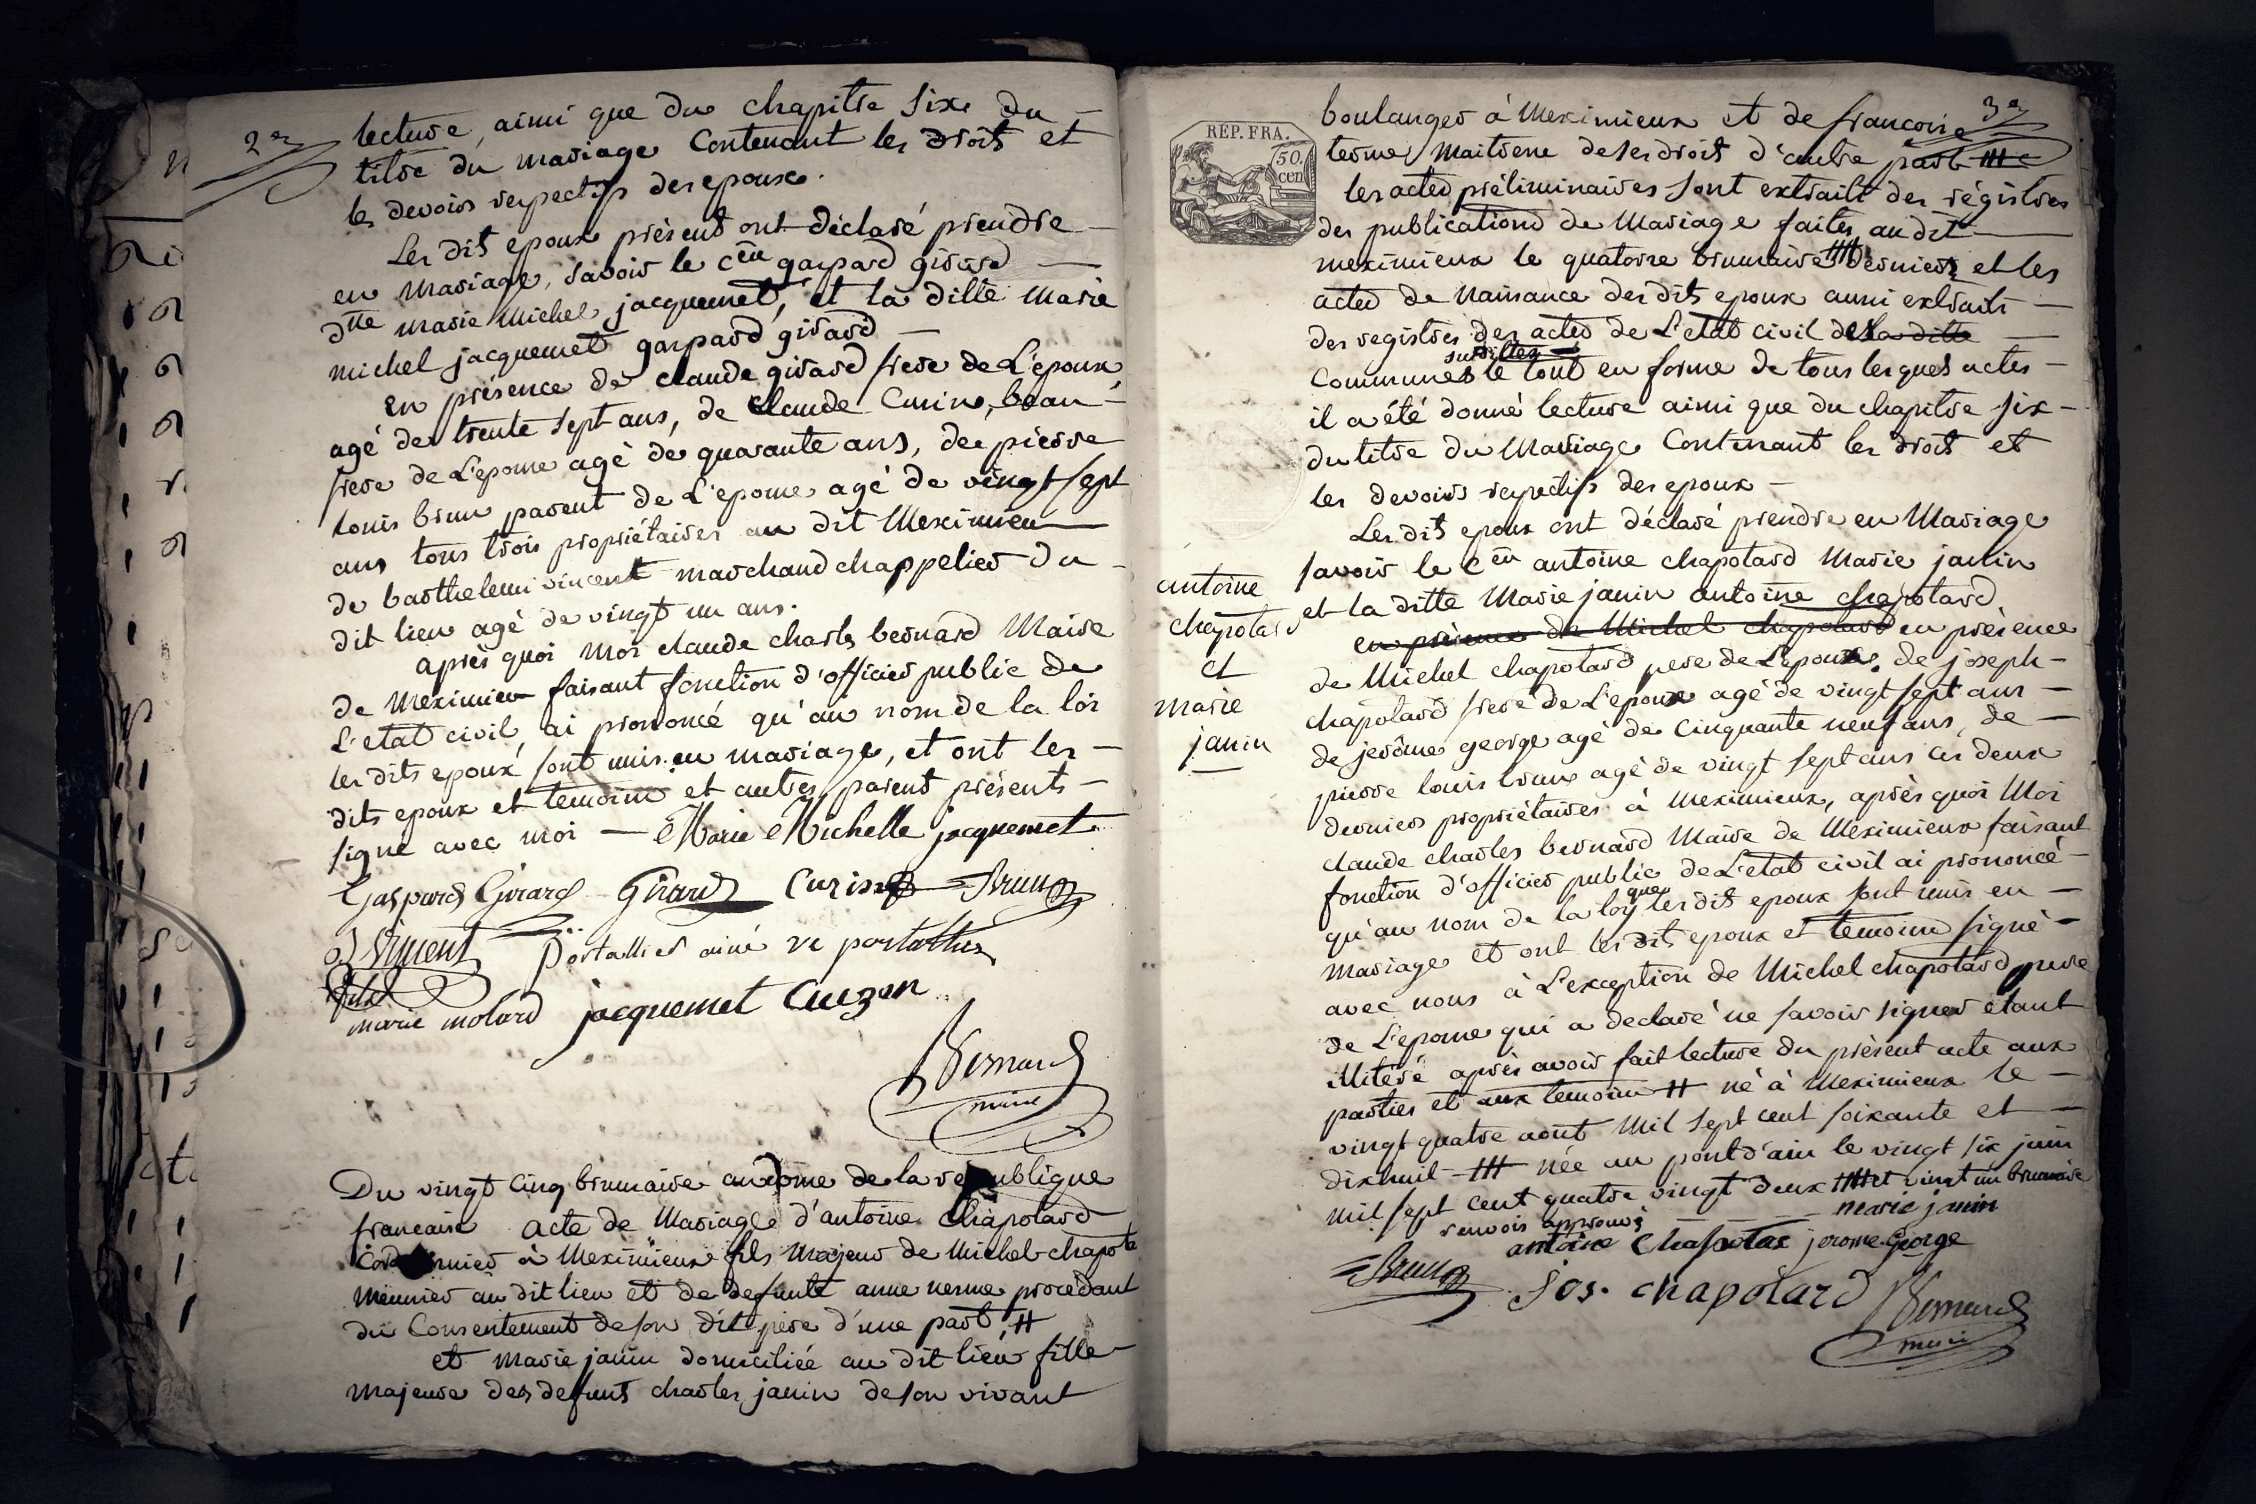 2e
lecture, ainsi que du chapitre six du
titre du mariage Contenant les droits et
les devoirs respectifs des epoux.
Les dits epoux présent ont déclaré prendre
en mariage, savoir le cen gaspard girard
dtte marie Michel jacquemet, et la ditte Marie
michel jacquemet gaspard girard
en présence de claude girard frere de L'epoux
agé de trente sept ans, de Claude Curin, beau
frere de L'epouse agé de quarante ans, de pierre
Louis brun parent de L'epouse agé de vingt sept
ans tous trois propriétaires au dit Meximieu
de barthelemi vincent marchand chappelier du
dit lieu agé de vingt un ans.
après quoi moi claude charles bernard Maire
de Meximieu faisant fonction d'officier public de
L'etat civil ai prononcé qu'au nom de la loi
les dits epoux sont unis en mariage, et ont les
dits epoux et temoins et autres parents présents
signé avec moi — Marie Michelle jacquemet
Gaspard Girard Girard Curin Brun
Vincent Portallier ainé ve portallier
fils
marie molard jacquemet Cuzon
Bernard
maire
Du vingt cinq brumaire an de la republique
francaise acte de Mariage d'antoine Chapotard
Cordonnier à Meximieux fils Majeur de Michel chapota
meunier au dit lieu et de defunte anne procédant
du Consentement de son dit pere d'une part #
et marie janin domiciliée au dit lieu fille
majeure des defunts charles janin de son vivant
3e
REP. FRA.
50.
cen
boulanger à Meximieux et de francoise
terme Maitresse de ses droits d'autre part
les actes préliminaires sont extraits des régistres
des publications de Mariage faites au dit
meximieux le quatorze brumaire dernier et les
actes de Naissance des dits epoux aussi extraits
des registres des actes de L'etat civil de la ditte
susdittes
Communes le tout en forme de tous lesquels actes
il a été donné lecture ainsi que du chapitre six
du titre du Mariage Contenant les droits et
les devoirs respectifs des epoux —
Les dits epoux ont déclaré prendre en Mariage
savoir le cen antoine chapotard Marie janin
et la ditte Marie janin antoine chapotard
en présence de Michel chapotard en présence
de Michel chapotard pere de L'epoux, de joseph
chapotard frere de L'epoux agé de vingt sept ans
de jerôme george agé de Cinquante neuf ans, de
pierre louis brun agé de vingt sept ans ces deux
derniers propriétaires à Meximieux, après quoi Moi
claude charles bernard Maire de Meximieux faisant
fonction d'officier public de L'etat civil ai prononcé
que
qu'au nom de la loy les dits epoux sont unis en
mariage et ont les dits epoux et temoins signé
avec nous à L'exception de Michel chapotard pere
de L'epoux qui a declaré ne savoir signer étant
illitéré après avoir fait lecture du présent acte aux
parties et aux temoins # né à Meximieux le
vingt quatre aout Mil sept cent soixante et
dixhuit née au pont d'ain le vingt six juin
mil sept cent quatre vingt deux et vingt un brumaire
renvois approuvés marie janin
antoine Chapotar jerome George
Brun Jos. chapotard Bernard
maire
antoine
chapotard
et
marie
janin